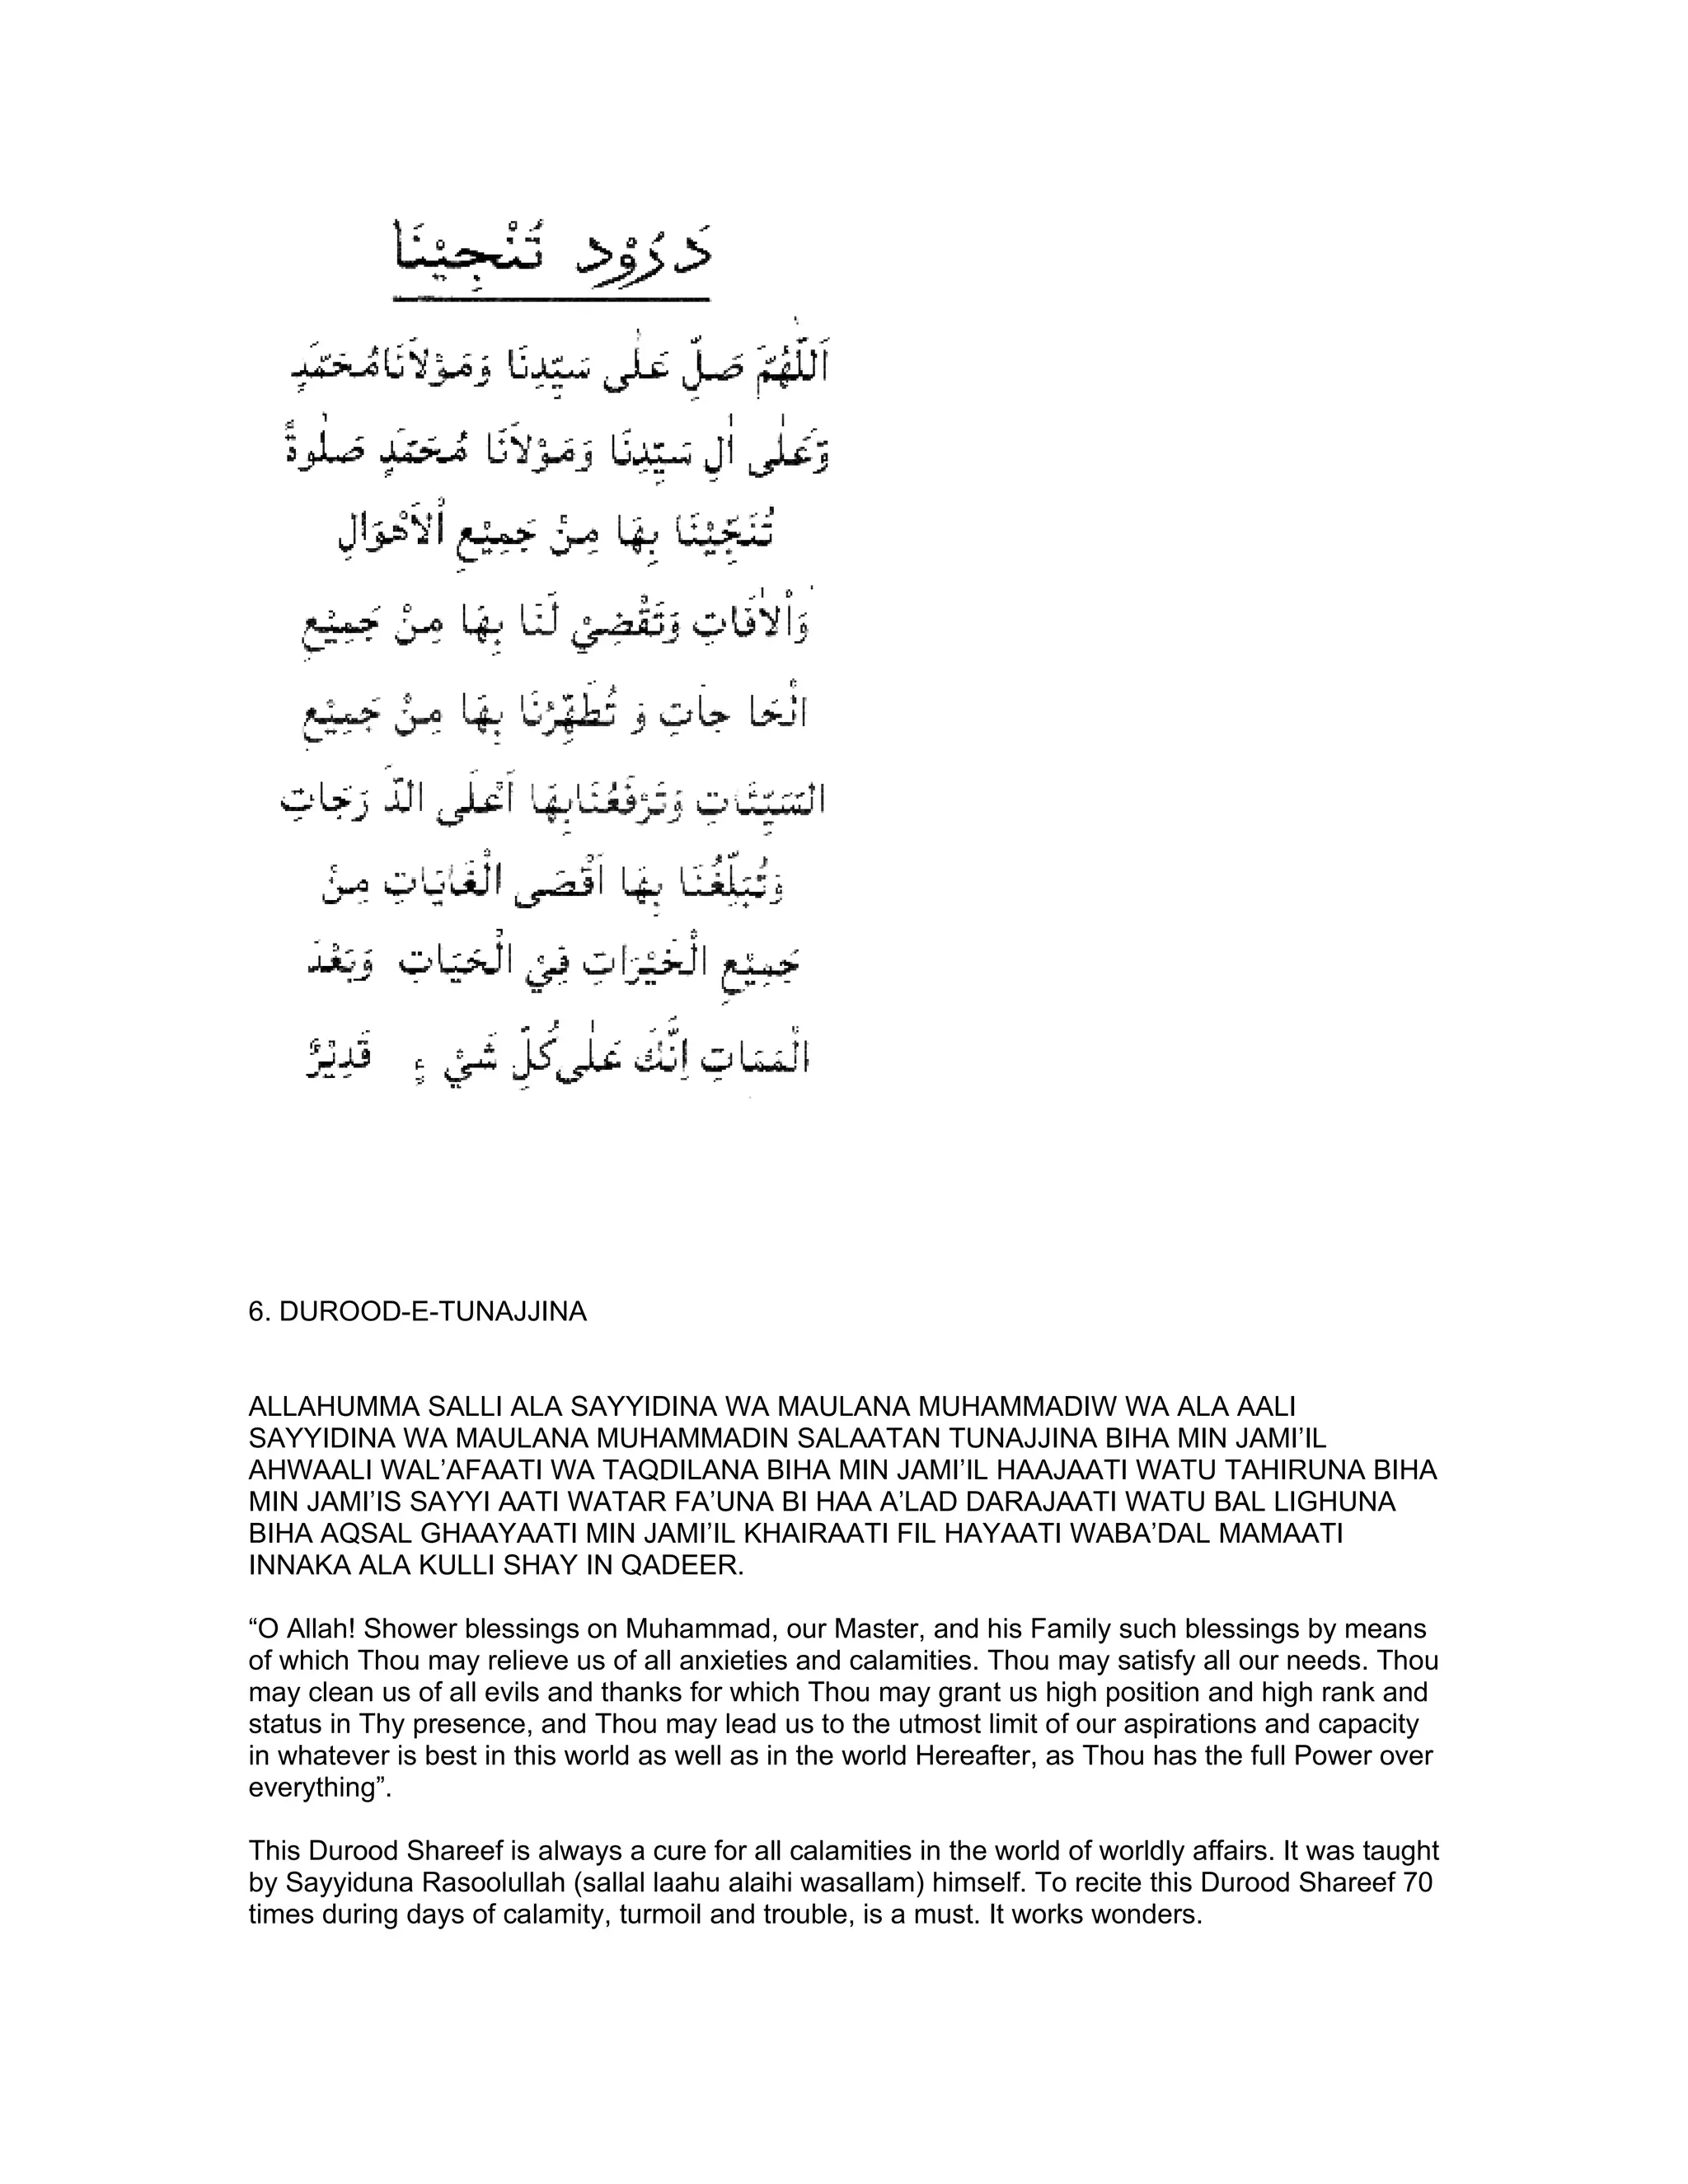 دَرُوْد تُنْجِيْنَا
اَللّٰهُمَّ صَلِّ عَلٰى سَيِّدِنَا وَمَوْلَانَا مُحَمَّدٍ
وَّعَلٰى اٰلِ سَيِّدِنَا وَمَوْلَانَا مُحَمَّدٍ صَلٰوةً
تُنَجِّيْنَا بِهَا مِنْ جَمِيْعِ اْلاَهْوَالِ
وَاْلاٰفَاتِ وَتَقْضِيْ لَنَا بِهَا مِنْ جَمِيْعِ
الْحَا جَاتِ وَ تُطَهِّرُنَا بِهَا مِنْ جَمِيْعِ
السَّيِّئَاتِ وَتَرْفَعُنَابِهَا اَعْلَى الدَّ رَجَاتِ
وَتُبَلِّغُنَا بِهَا اَقْصَى الْغَايَاتِ مِنْ
جَمِيْعِ الْخَيْرَاتِ فِيْ الْحَيَاتِ وَبَعْدَ
الْمَمَاتِ اِنَّكَ عَلٰى كُلِّ شَيْ ءٍ قَدِيْرٌ
6. DUROOD-E-TUNAJJINA
ALLAHUMMA SALLI ALA SAYYIDINA WA MAULANA MUHAMMADIW WA ALA AALI
SAYYIDINA WA MAULANA MUHAMMADIN SALAATAN TUNAJJINA BIHA MIN JAMI’IL
AHWAALI WAL’AFAATI WA TAQDILANA BIHA MIN JAMI’IL HAAJAATI WATU TAHIRUNA BIHA
MIN JAMI’IS SAYYI AATI WATAR FA’UNA BI HAA A’LAD DARAJAATI WATU BAL LIGHUNA
BIHA AQSAL GHAAYAATI MIN JAMI’IL KHAIRAATI FIL HAYAATI WABA’DAL MAMAATI
INNAKA ALA KULLI SHAY IN QADEER.
“O Allah! Shower blessings on Muhammad, our Master, and his Family such blessings by means
of which Thou may relieve us of all anxieties and calamities. Thou may satisfy all our needs. Thou
may clean us of all evils and thanks for which Thou may grant us high position and high rank and
status in Thy presence, and Thou may lead us to the utmost limit of our aspirations and capacity
in whatever is best in this world as well as in the world Hereafter, as Thou has the full Power over
everything”.
This Durood Shareef is always a cure for all calamities in the world of worldly affairs. It was taught
by Sayyiduna Rasoolullah (sallal laahu alaihi wasallam) himself. To recite this Durood Shareef 70
times during days of calamity, turmoil and trouble, is a must. It works wonders.